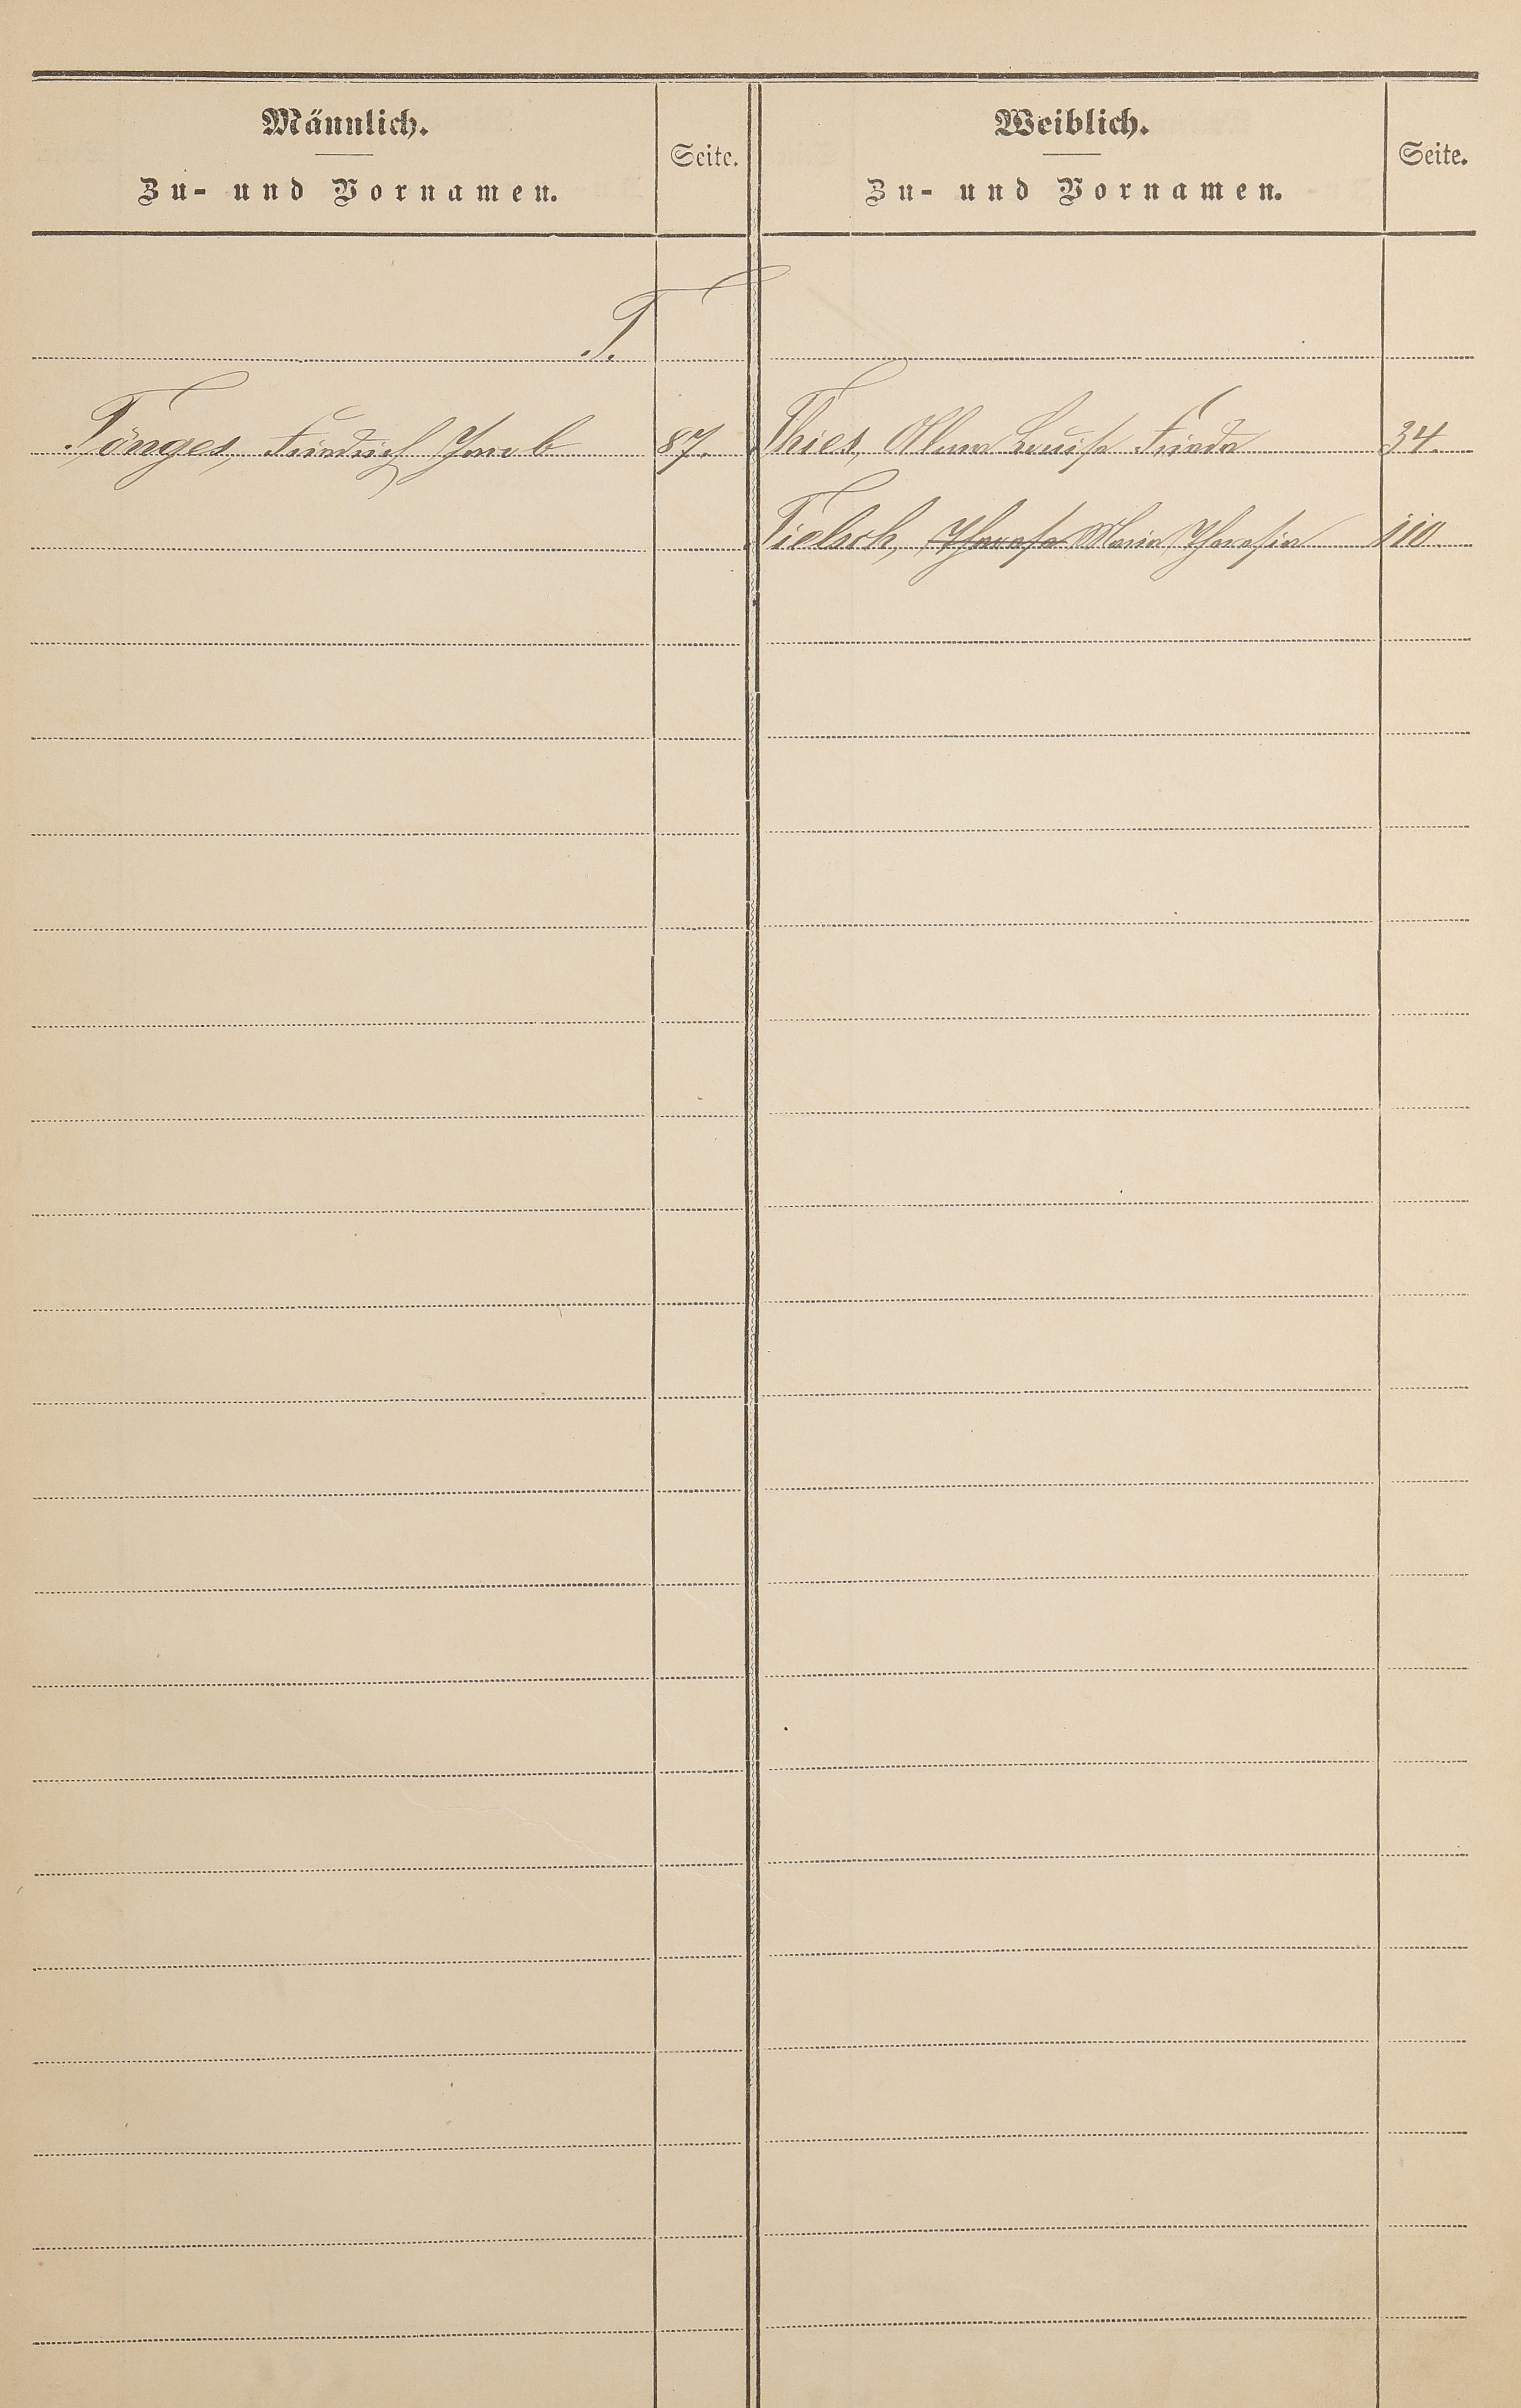 Männlich.
Zu- und Vornamen.
Seite.
Weiblich.
Zu- und Vornamen.
Seite.
T.
Tönges, Friedrich Jacob 87.
Thies, Alma Louise Frieda 34.
Tielsch, Therese Maria Theresia 110.